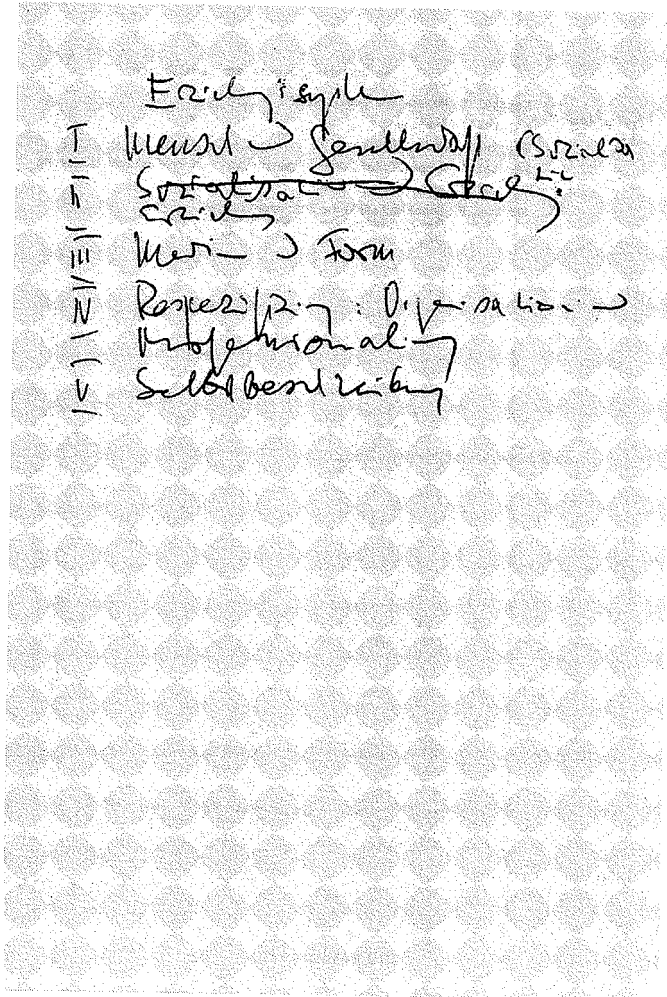 Erziehungssystem
I Mensch → Gesellschaft (Sozialisa
II Sozialisation → Erziehung
Erziehung
III Medium → Form
IV Respezifizierung: Organisation →
Professionalisierung
V Selbstbeschreibung